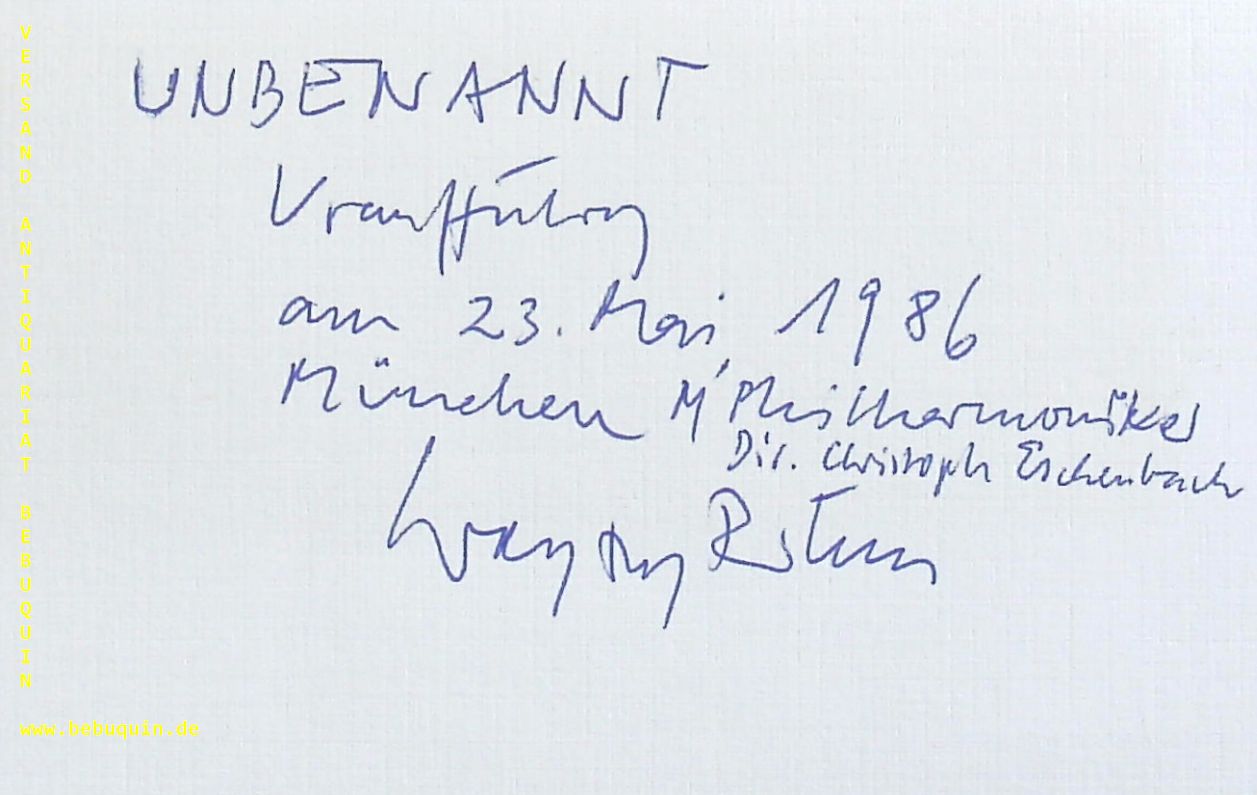 UNBENANNT
Uraufführung
am 23. Mai 1986
München M'Philharmoniker
Dir. Christoph Eschenbach
Wolfgang Rihm
VERSAND ANTIQUARIAT BEBUQUIN
www.bebuquin.de